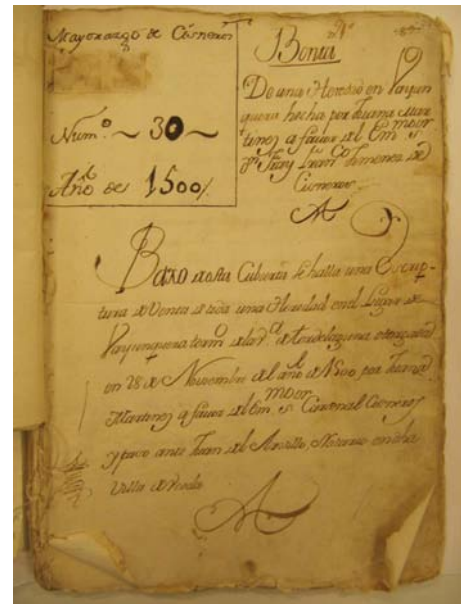 Mayorazgo de Cisneros
Num.º ~ 30 ~
Año de 1500/.
Benta
De una Heredad en Vayun
quera hecha por Juana Mar
tinez a favor del Em.mo S.r
D.n Fray Fran.co Ximenez de
Cisneros
Baxo de esta Cubierta se halla una Escrip-
tura de Venta de toda una Heredad en el Lugar de
Vayunquera term.o de la V.a de Tordelaguna otorgada
en 28 de Noviembre del año de 1500 por Juana
Martinez a favor del Em.mo S.or Cardenal Cisneros
y paso ante Juan del Notario en dha
Villa de